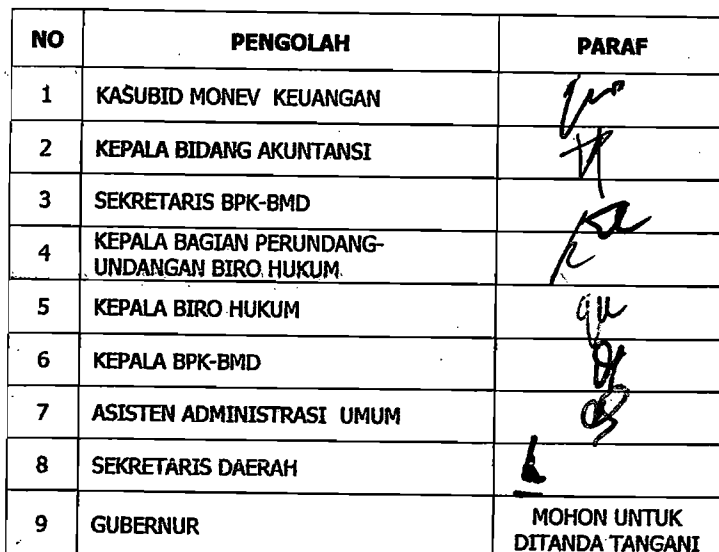 NO PENGOLAH PARAF
1 KASUBID MONEV KEUANGAN
2 KEPALA BIDANG AKUNTANSI
3 SEKRETARIS BPK-BMD
4 KEPALA BAGIAN PERUNDANG-
UNDANGAN BIRO HUKUM
5 KEPALA BIRO HUKUM
6 KEPALA BPK-BMD
7 ASISTEN ADMINISTRASI UMUM
8 SEKRETARIS DAERAH
9 GUBERNUR MOHON UNTUK
DITANDA TANGANI